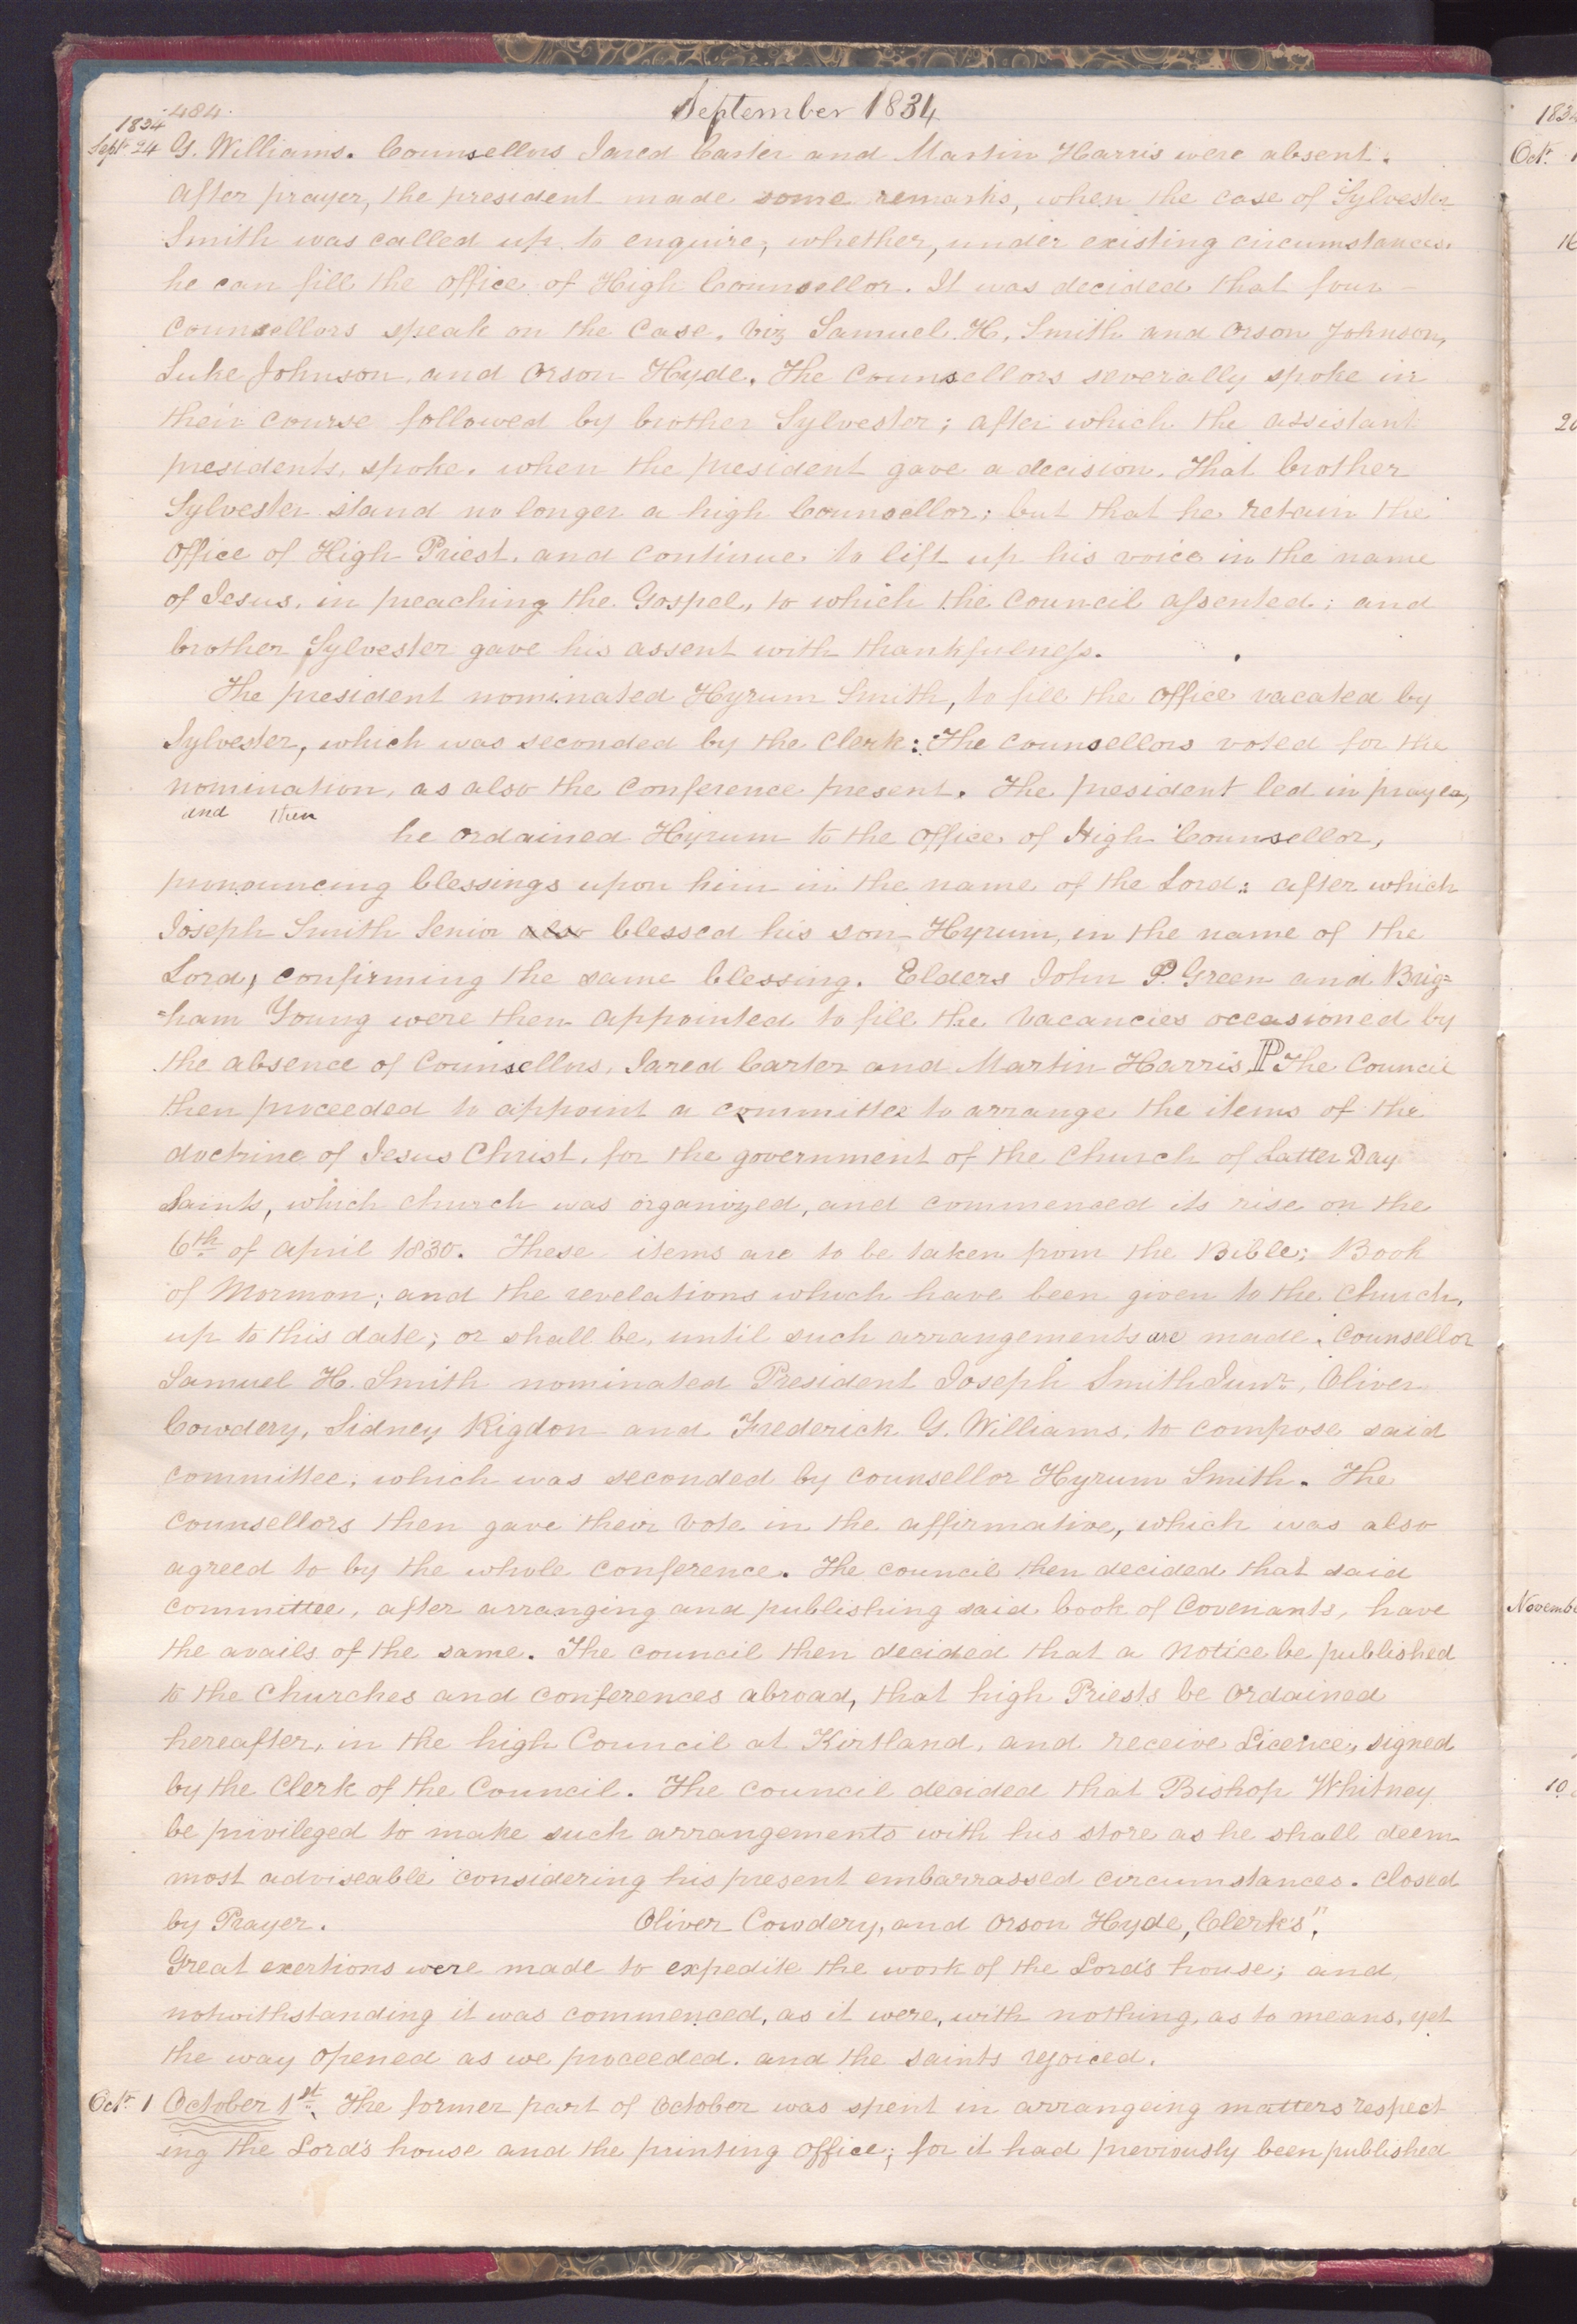 September 1834
484.
1834
Sept. 24 G. Williams. Counsellors Jared Carter and Martin Harris were absent.
After prayer, the president made some remarks, when the case of Sylvester
Smith was called up to enquire, whether, under existing circumstances.
he can fill the office of High Counsellor. It was decided that four
counsellors speak on the case. viz Samuel. H. Smith and Orson Johnson,
Luke Johnson, and Orson Hyde. The counsellors severally spoke in
their course followed by brother Sylvester; after which the assistant
presidents, spoke. when the president gave a decision. That brother
Sylvester stand no longer a high Counsellor; but that he retain the
office of High Priest. and continue to lift up his voice in the name
of Jesus. in preaching the Gospel, to which the council assented; and
brother Sylvester gave his assent with thankfulness.
The president nominated Hyrum Smith, to fill the office vacated by
Sylvester, which was seconded by the Clerk: The counsellors voted for the
nomination, as also the conference present. The president led in prayer,
and then
he ordained Hyrum to the office of High Counsellor,
pronouncing blessings upon him in the name of the Lord: after which
Joseph Smith Senior also blessed his son Hyrum, in the name of the
Lord, confirming the same blessing. Elders John P. Green and Brig=
=ham Young were then appointed to fill the vacancies occasioned by
the absence of Counsellors, Jared Carter and Martin Harris. P The Council
then proceeded to appoint a committee to arrange the items of the
doctrine of Jesus Christ, for the government of the Church of Latter Day
Saints, which church was organized, and commenced its rise on the
6th of April 1830. These items are to be taken from the Bible; Book
of Mormon; and the revelations which have been given to the church,
up to this date; or shall be, until such arrangements are made. Counsellor
Samuel H. Smith nominated President Joseph Smith Junr, Oliver
Cowdery, Sidney Rigdon and Frederick G. Williams, to compose said
committee; which was seconded by counsellor Hyrum Smith. The
counsellors then gave their vote in the affirmative, which was also
agreed to by the whole conference. The council then decided that said
committee, after arranging and publishing said book of Covenants, have
the avails of the same. The council then decided that a notice be published
to the churches and conferences abroad, that high Priests be ordained
hereafter, in the high Council at Kirtland, and receive Licence, signed
by the Clerk of the Council. The council decided that Bishop Whitney
be privileged to make such arrangements with his store as he shall deem
most adviseable considering his present embarrassed circumstances. Closed
by Prayer. Oliver Cowdery, and Orson Hyde, Clerks".
Great exertions were made to expedite the work of the Lord's house; and
notwithstanding it was commenced, as it were, with nothing, as to means, yet
the way opened as we proceeded. and the saints rejoiced.
Oct. 1 October 1st. The former part of October was spent in arrangeing matters respect
ing the Lord's house and the printing office; for it had previously been published
183
Oct. 1
16
20
Novembe
10